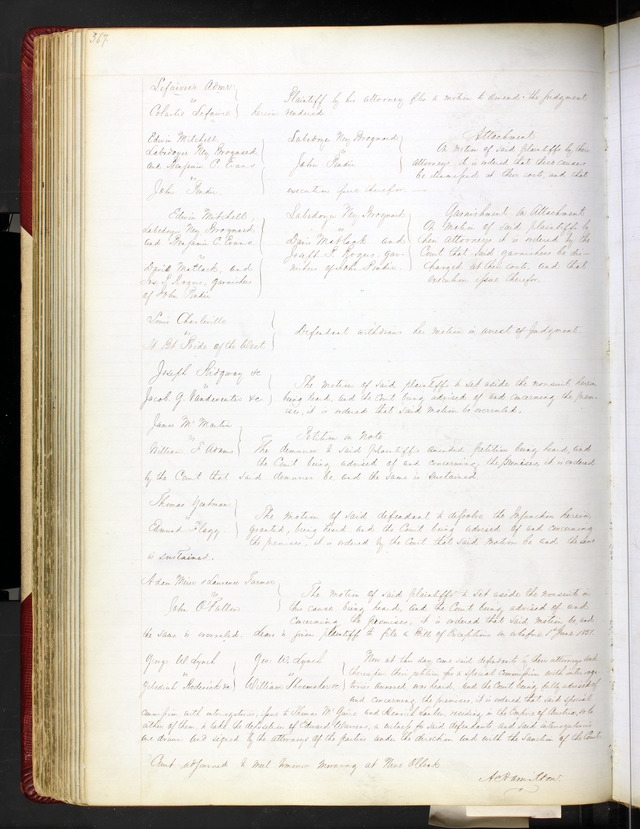 367.
Lefaivres Admr
vs
Lefaivre
Plaintiff by his attorney files a motion to amend the judgment
herein rendered
Edwin Mitchell
and Benjamin C. Evans
vs
John
Attachment
On motion of said plaintiffs by their
attorneys, it is ordered that this cause
be at their costs, and that
execution issue therefor.
Edwin Mitchell,
and Benjamin C. Evans
vs
David Matlack, and
Jos. S. Rogers, garnishees
of John
David Matlack and
Joseph S. Rogers, gar-
nishees of John
Garnishment on Attachment
On Motion of said plaintiffs by
their attorneys it is ordered by the
Court that said garnishees be dis-
charged at their costs, and that
execution issue therefor.
Louis Charleville
vs
St Bt Pride of the West
Defendant withdraws her motion in arrest of Judgment
Joseph Ridgway &c
vs
Jacob G. Vandeventer &c
The motion of said plaintiffs to set aside the nonsuit herein
being heard, and the Court being advised of and concerning the prem-
ises, it is ordered that said motion be overruled.
James McMartin
vs
William F. Adams
Petition on Note
The demurrer to said plaintiffs amended petition being heard, and
the Court being advised of and concerning the premises, it is ordered
by the Court that said demurrer be and the same is sustained
Thomas Yeatman
vs
Edmund Flagg
The motion of said defendant to dissolve the Injunction herein
granted, being heard and the Court being advised of and concerning
the premises, it is ordered by the Court that said motion be and the same
is sustained.
Adam Mense & Laurence
vs
John O'Fallon
The motion of said plaintiffs to set aside the nonsuit in
this cause being heard, and the Court being advised of and
concerning the premises, it is ordered that said motion be and
the same is overruled. leave is given plaintiff to file a Bill of Exceptions on or before 1st June 1851.
George W Lynch
vs
Roderick &c
Geo. W. Lynch
vs
William &c
Now at this day come said defendants by their attorneys and
thereupon their petition for a special Commission with interroga-
tories annexed, was heard, and the Court being fully advised of
and concerning the premises, it is ordered that said special
commission with interrogatories, issue to Thomas and residing in the of or to
either of them, to take the deposition of Edward Warren, a witness for said defendants and said interrogatories
are drawn and signed by the attorneys of the parties under the direction and with the sanction of the Court
Court adjourned to meet tomorrow morning at Nine O'Clock
A. Hamilton